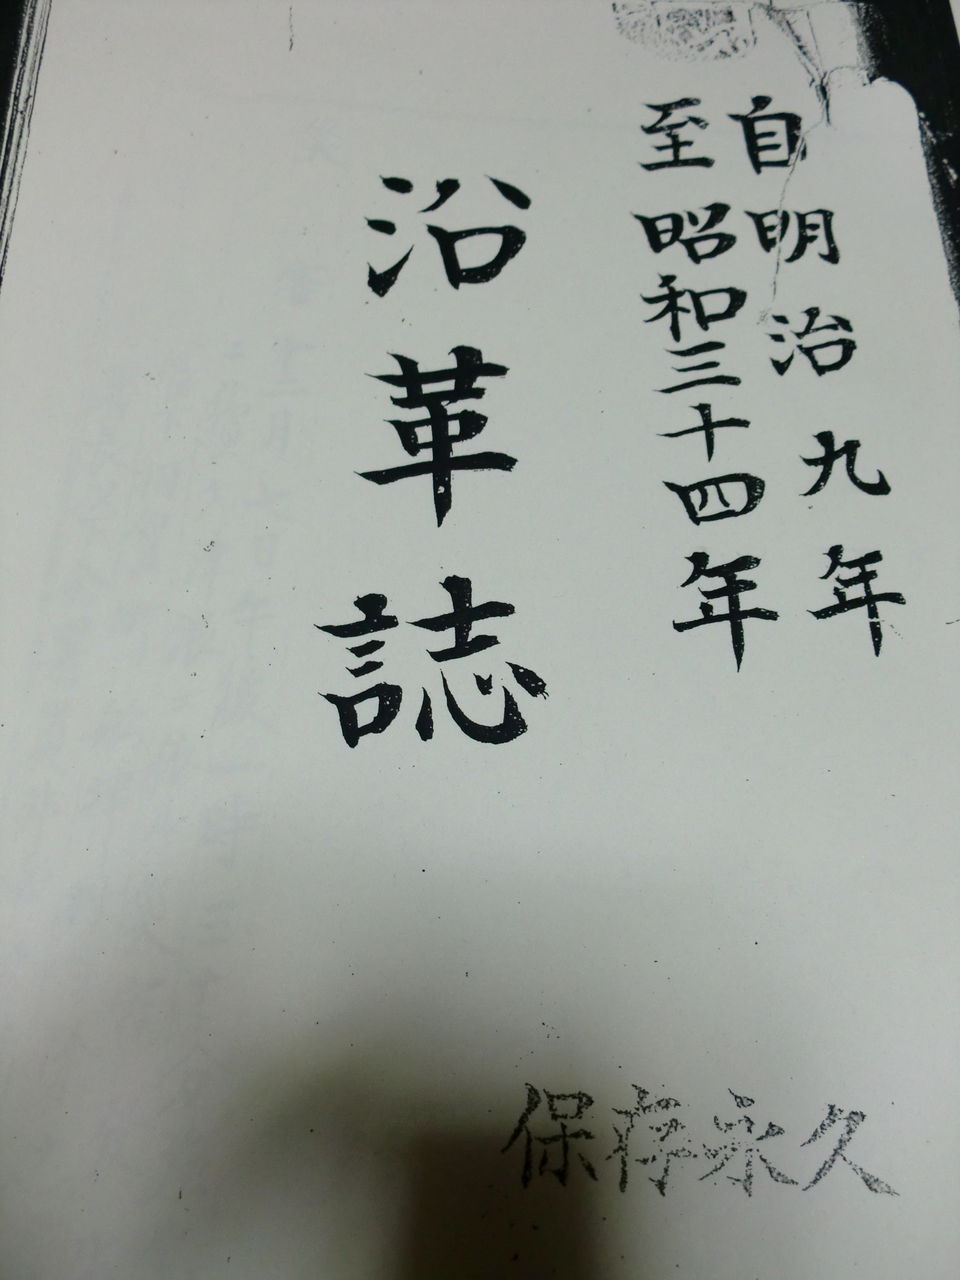 自明治九年
至昭和三十四年
沿革誌
保存永久